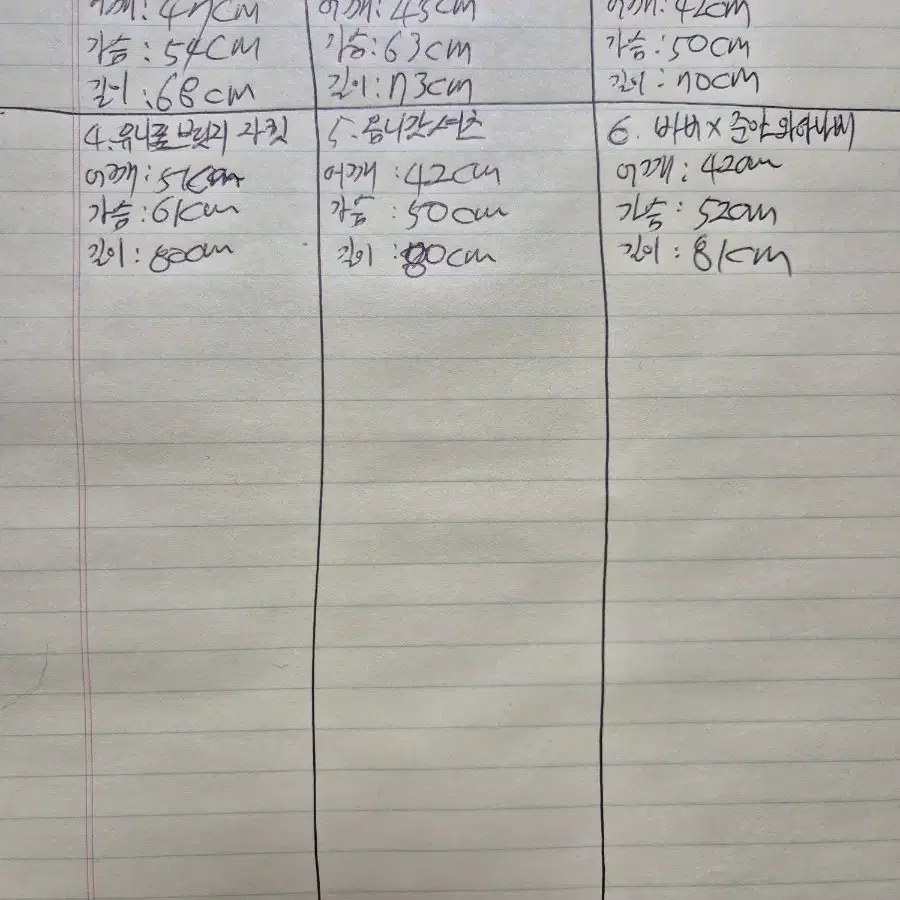 어깨: 47cm
가슴: 54cm
길이: 68cm
어깨: 45cm
가슴: 63cm
길이: 73cm
어깨: 42cm
가슴: 50cm
길이: 70cm
4. 유니클로 브릿지 자켓
어깨: 51cm
가슴: 61cm
길이: 80cm
5. 옴니갓 셔츠
어깨: 42cm
가슴: 50cm
길이: 80cm
6. 바버 x 준야 와타나베
어깨: 42cm
가슴: 52cm
길이: 81cm